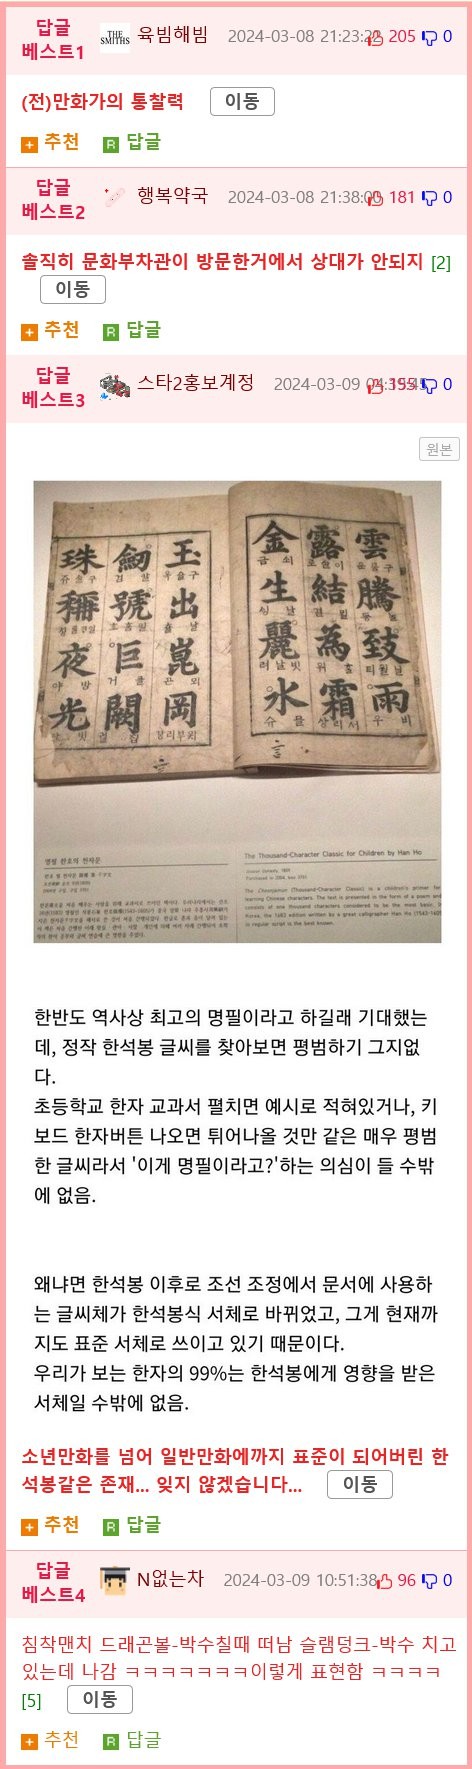 답글
베스트1
THE SMITHS
육빔해빔
2024-03-08 21:23:
205
0
(전)만화가의 통찰력 이동
추천 R 답글
답글
베스트2
행복약국
2024-03-08 21:38:00
181
0
솔직히 문화부차관이 방문한거에서 상대가 안되지 [2]
이동
추천 R 답글
답글
베스트3
스타2홍보계정
2024-03-09
0
원본
雲騰致雨
露結為霜
金生麗水
玉出崑岡
劒號巨闕
珠稱夜光
명필 한호의 천자문
The Thousand-Character Classic for Children by Han Ho
한반도 역사상 최고의 명필이라고 하길래 기대했는
데, 정작 한석봉 글씨를 찾아보면 평범하기 그지없
다.
초등학교 한자 교과서 펼치면 예시로 적혀있거나, 키
보드 한자버튼 나오면 튀어나올 것만 같은 매우 평범
한 글씨라서 '이게 명필이라고?'하는 의심이 들 수밖
에 없음.
왜냐면 한석봉 이후로 조선 조정에서 문서에 사용하
는 글씨체가 한석봉식 서체로 바뀌었고, 그게 현재까
지도 표준 서체로 쓰이고 있기 때문이다.
우리가 보는 한자의 99%는 한석봉에게 영향을 받은
서체일 수밖에 없음.
소년만화를 넘어 일반만화에까지 표준이 되어버린 한
석봉같은 존재... 잊지 않겠습니다... 이동
추천 R 답글
답글
베스트4
N없는차
2024-03-09 10:51:38
96
0
침착맨치 드래곤볼-박수칠때 떠남 슬램덩크-박수 치고
있는데 나감 ㅋㅋㅋㅋㅋㅋㅋ이렇게 표현함 ㅋㅋㅋㅋ
[5] 이동
추천 R 답글